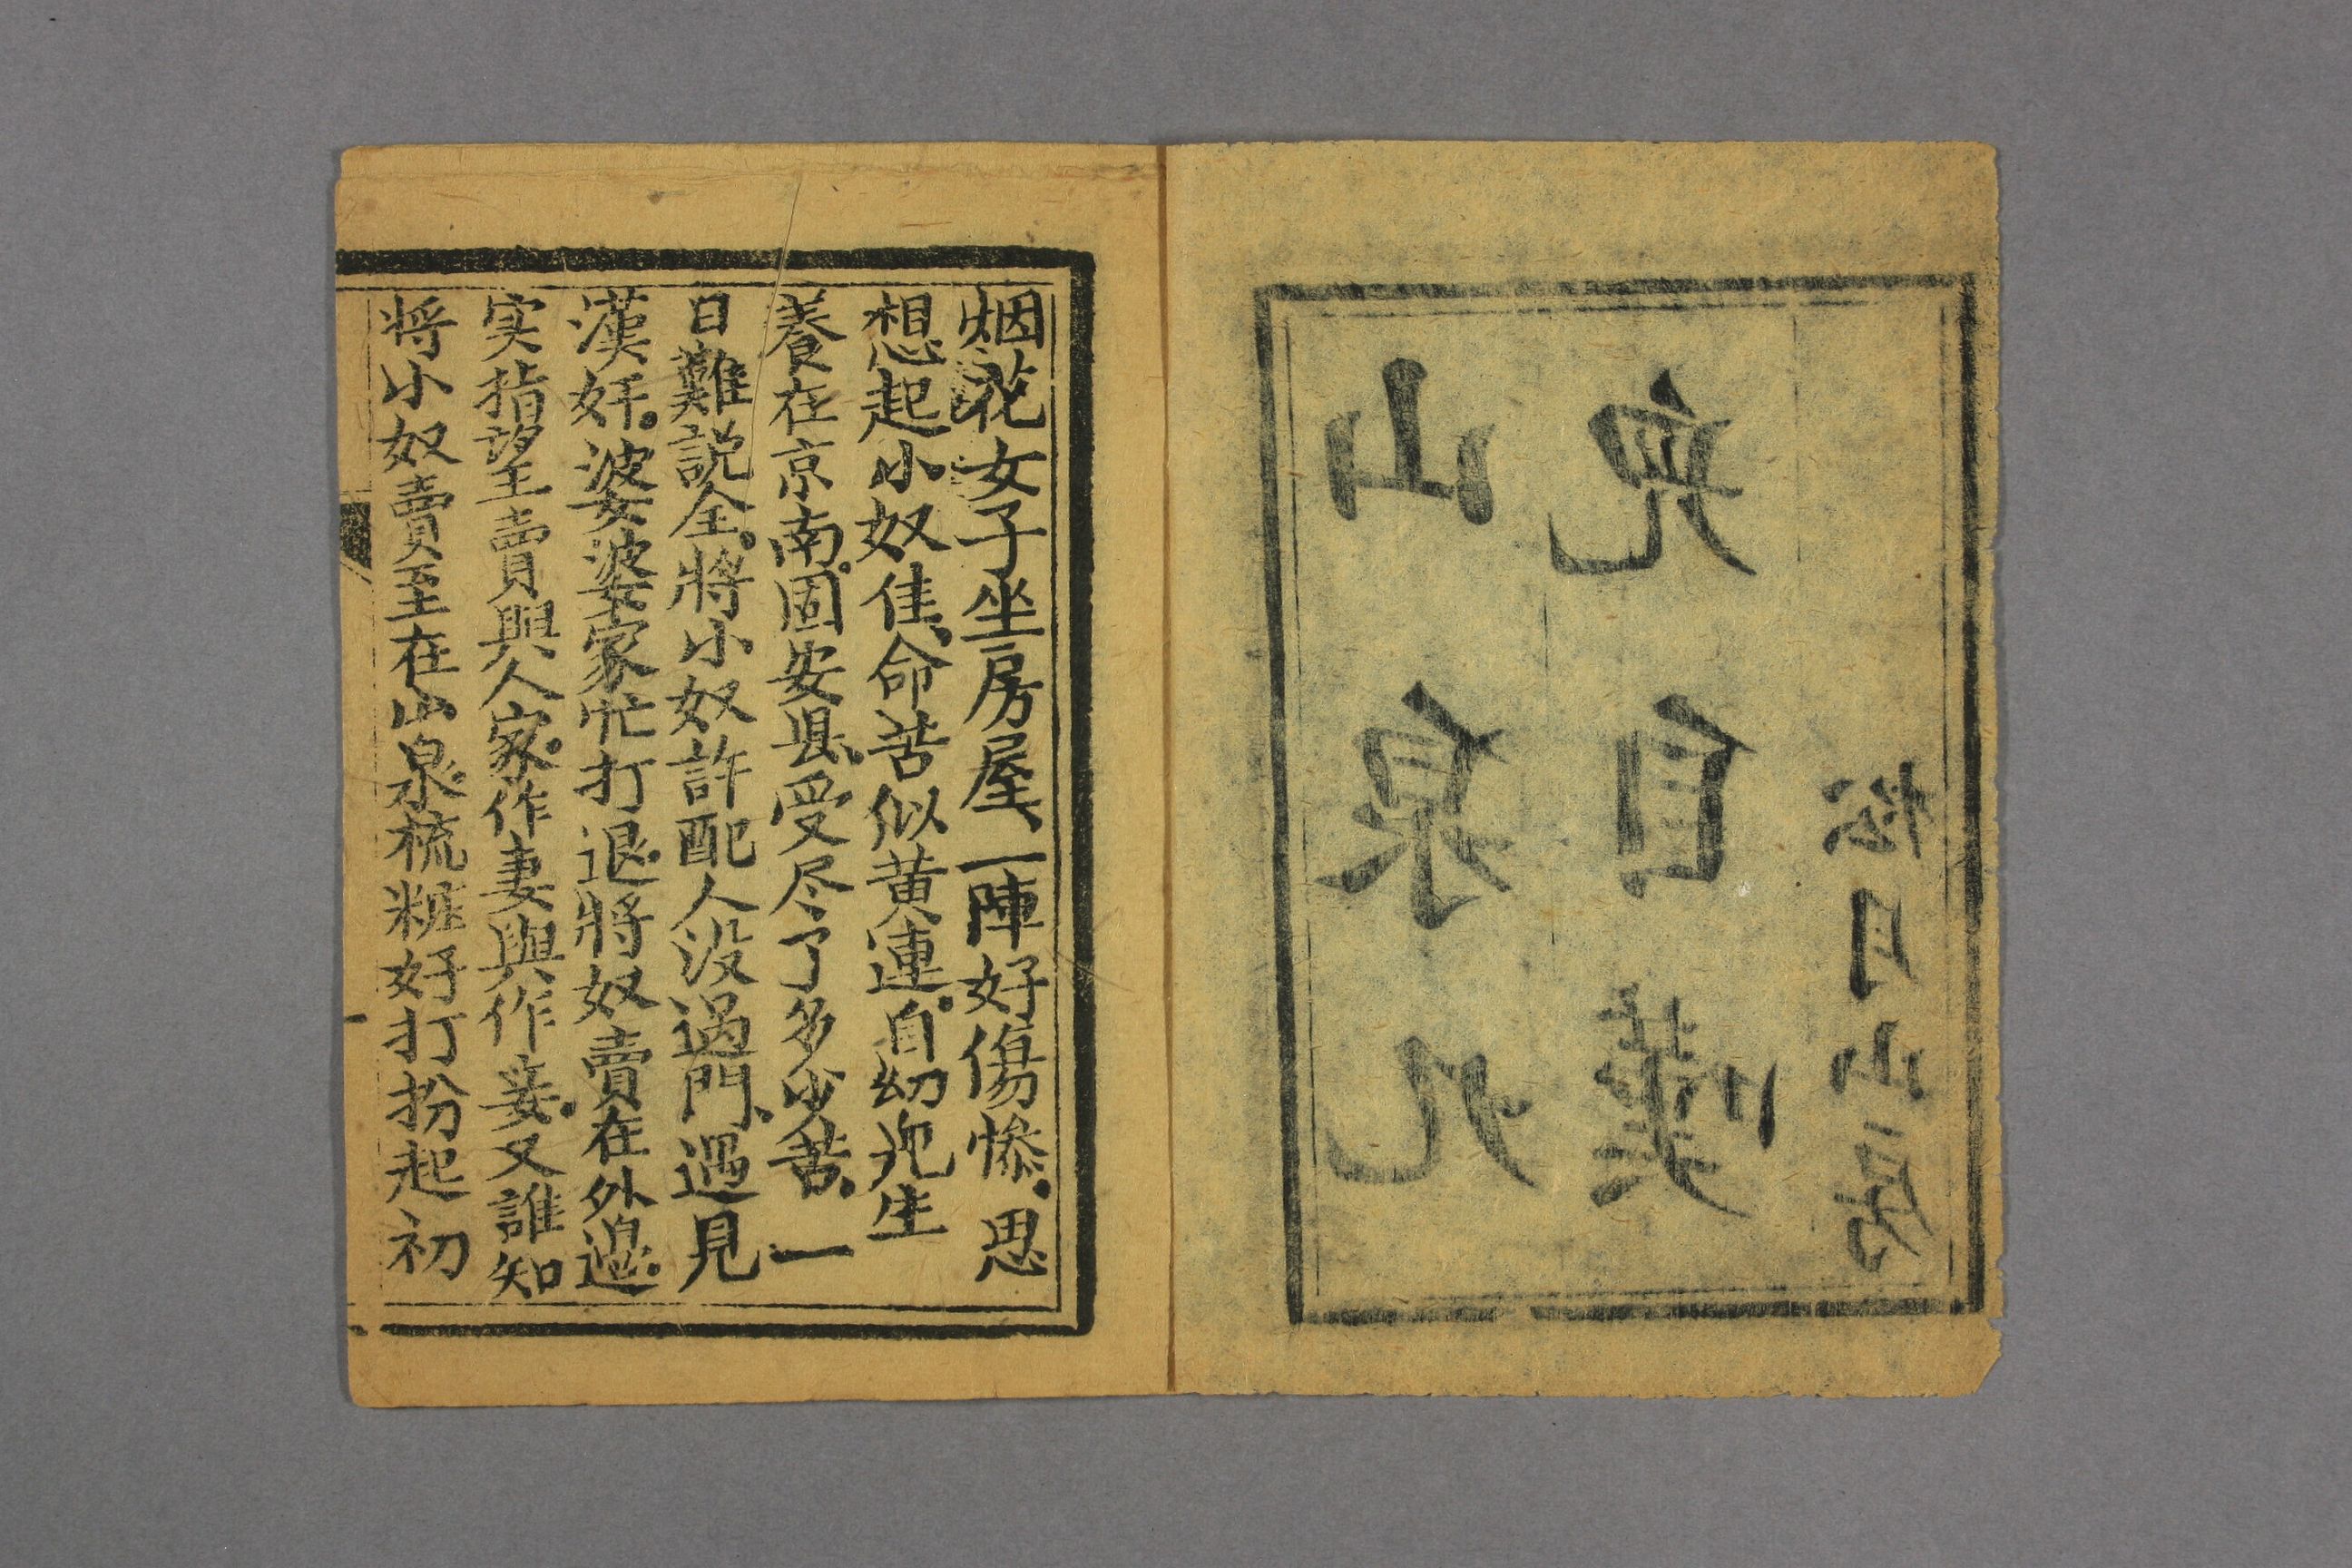 山泉九
兒自嘆
松月山房
烟花女子坐房屋、一陣好傷惨.思
想起小奴佳、命苦似黄連.自幼児生
養在京南.固安县、受尽了多少苦.一
日難説全.將小奴許配人没過門、遇見
漢奸.婆婆家忙打退.將奴賣在外邉.
实指望賣與人家.作妻與作妾.又誰知
将小奴賣至在山泉.梳粧好打扮起初